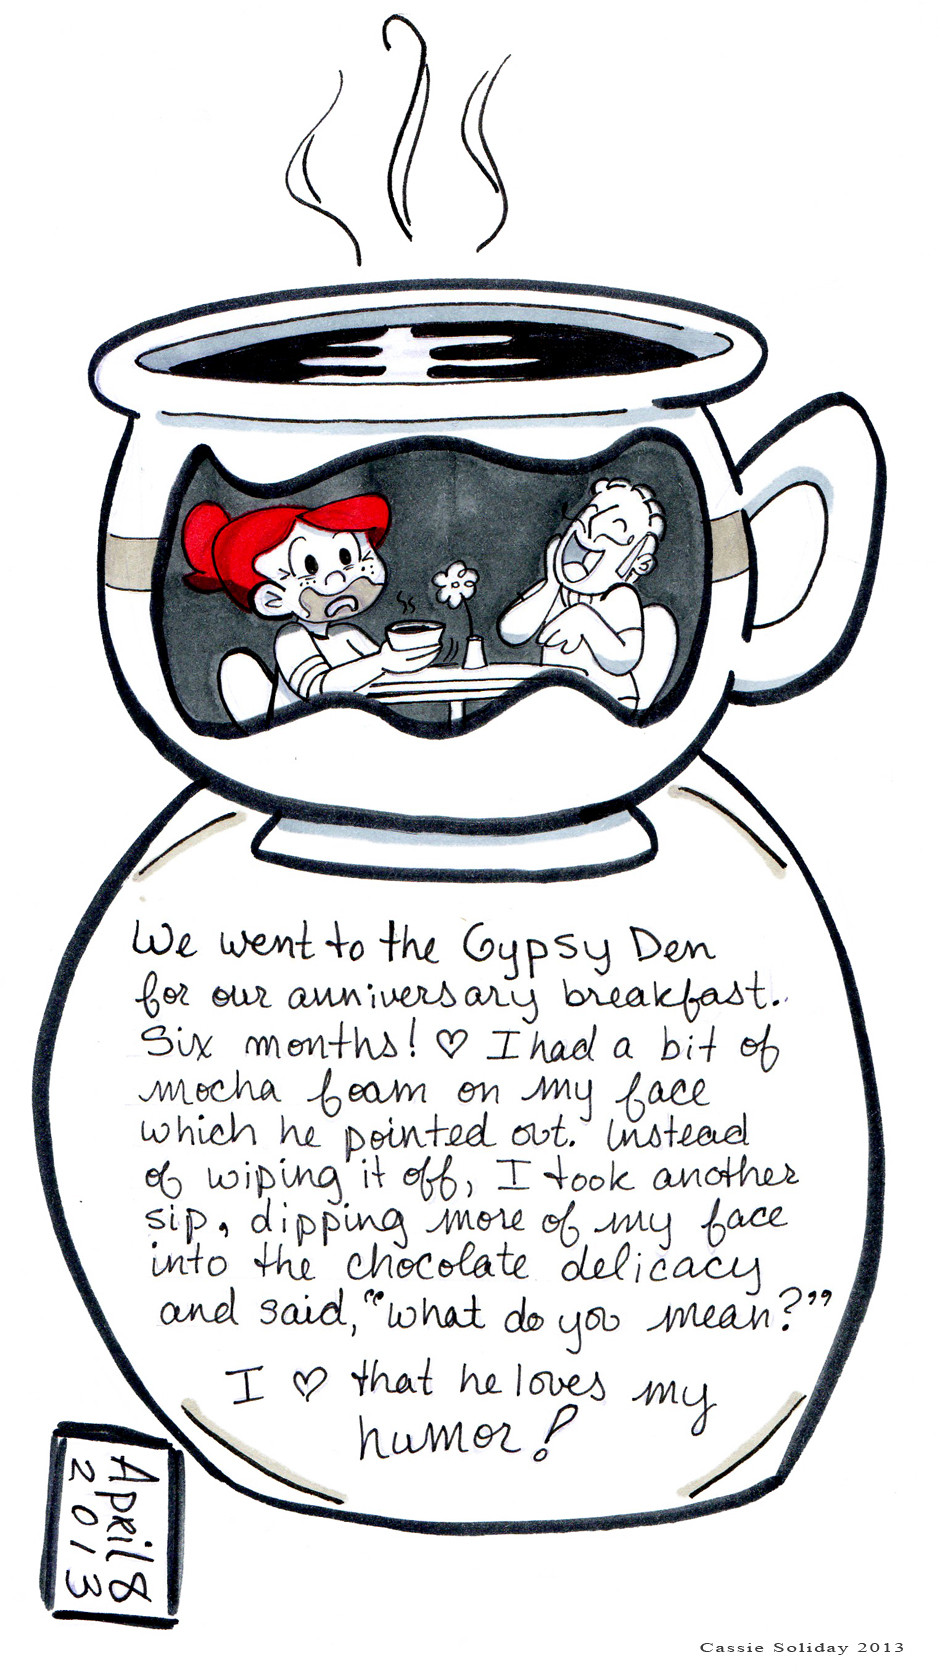 We went to the Gypsy Den
for our anniversary breakfast.
Six months! ♡ I had a bit of
mocha foam on my face
which he pointed out. Instead
of wiping it off, I took another
sip, dipping more of my face
into the chocolate delicacy
and said, "what do you mean?"
I ♡ that he loves my
humor!
April 8
2013
Cassie Soliday 2013